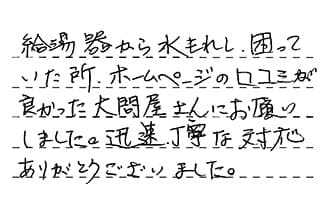 給湯器から水もれし、困って
いた所、ホームページの口コミが
良かった大問屋さんにお願い
しました。迅速丁寧な対応
ありがとうございました。